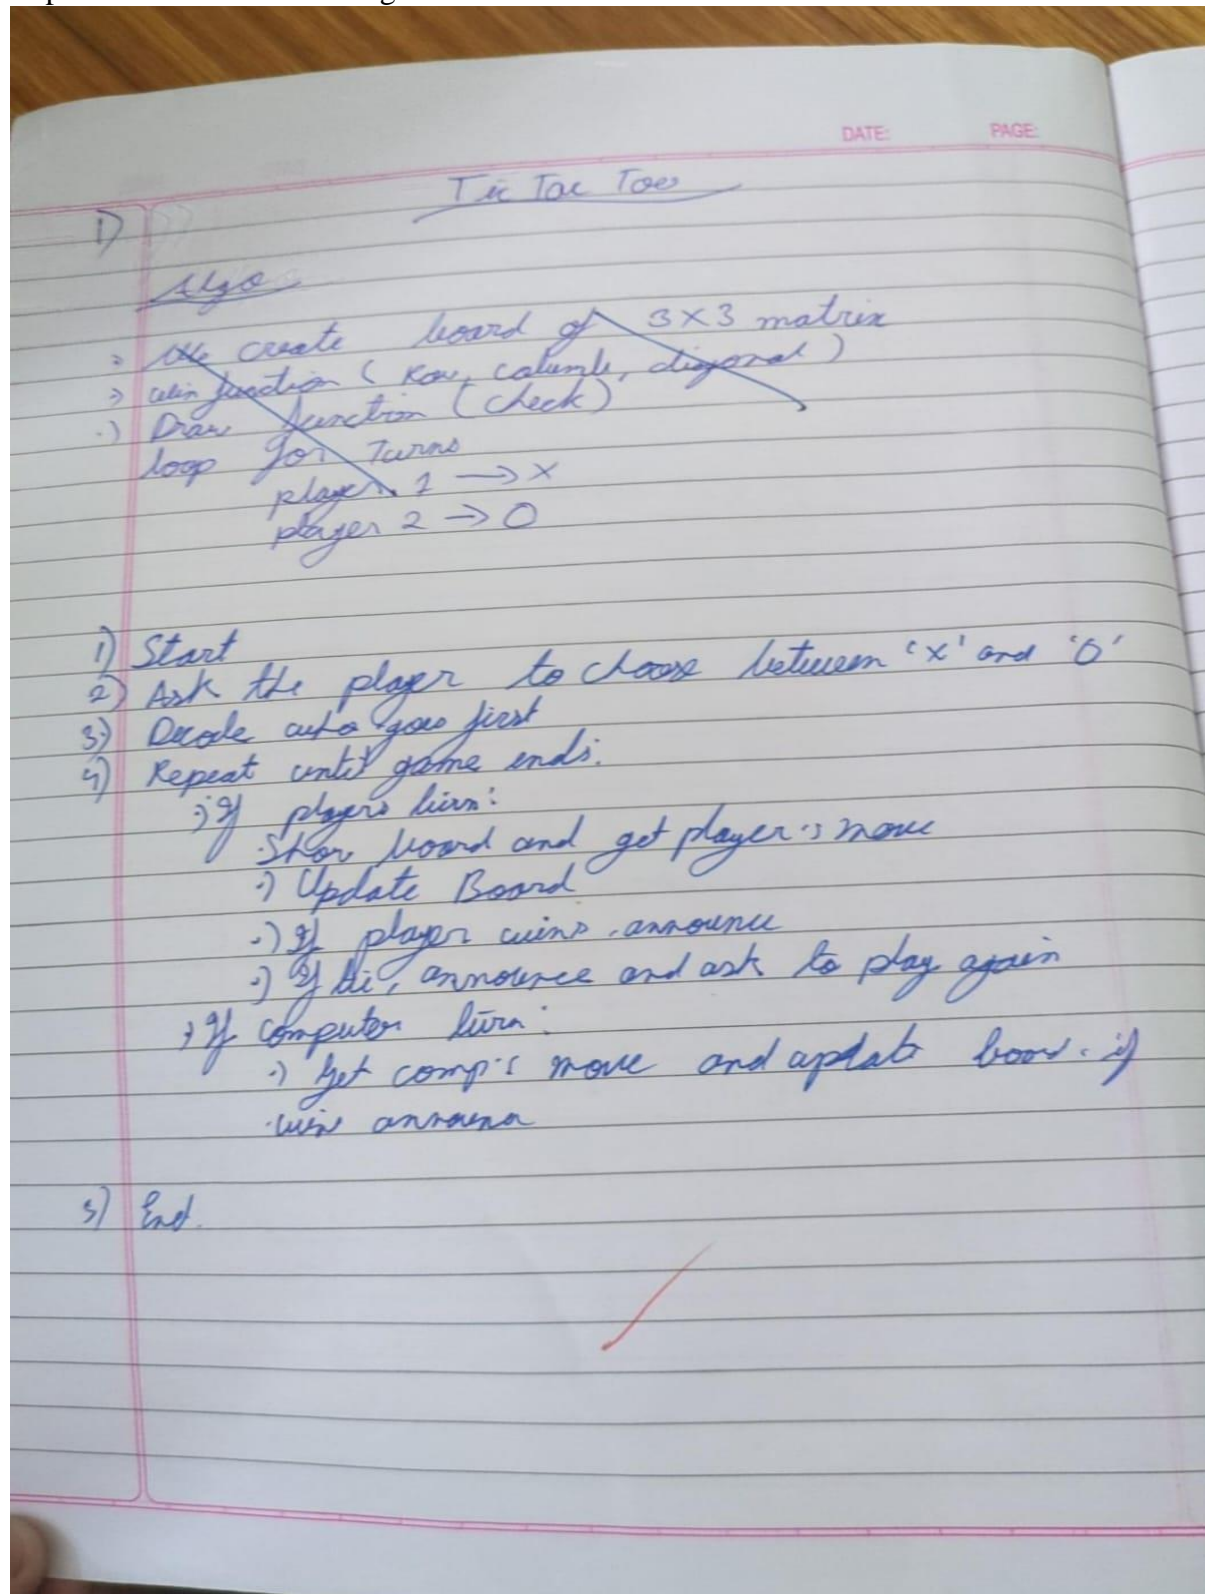 DATE: PAGE:
Tic Tac Toe
1)
Algo
We create board of 3×3 matrix
win function (Row, columb, diagonal)
Draw function (check)
loop for Turns
player 1 → X
player 2 → O
1) Start
2) Ask the player to choose between 'X' and 'O'
3) Decode who goes first
4) Repeat until game ends:
If players turn:
Show board and get player's move
Update Board
If player wins, announce
If tie, announce and ask to play again
If computer turn:
get comp's move and update board. if
wins announce
5) End.